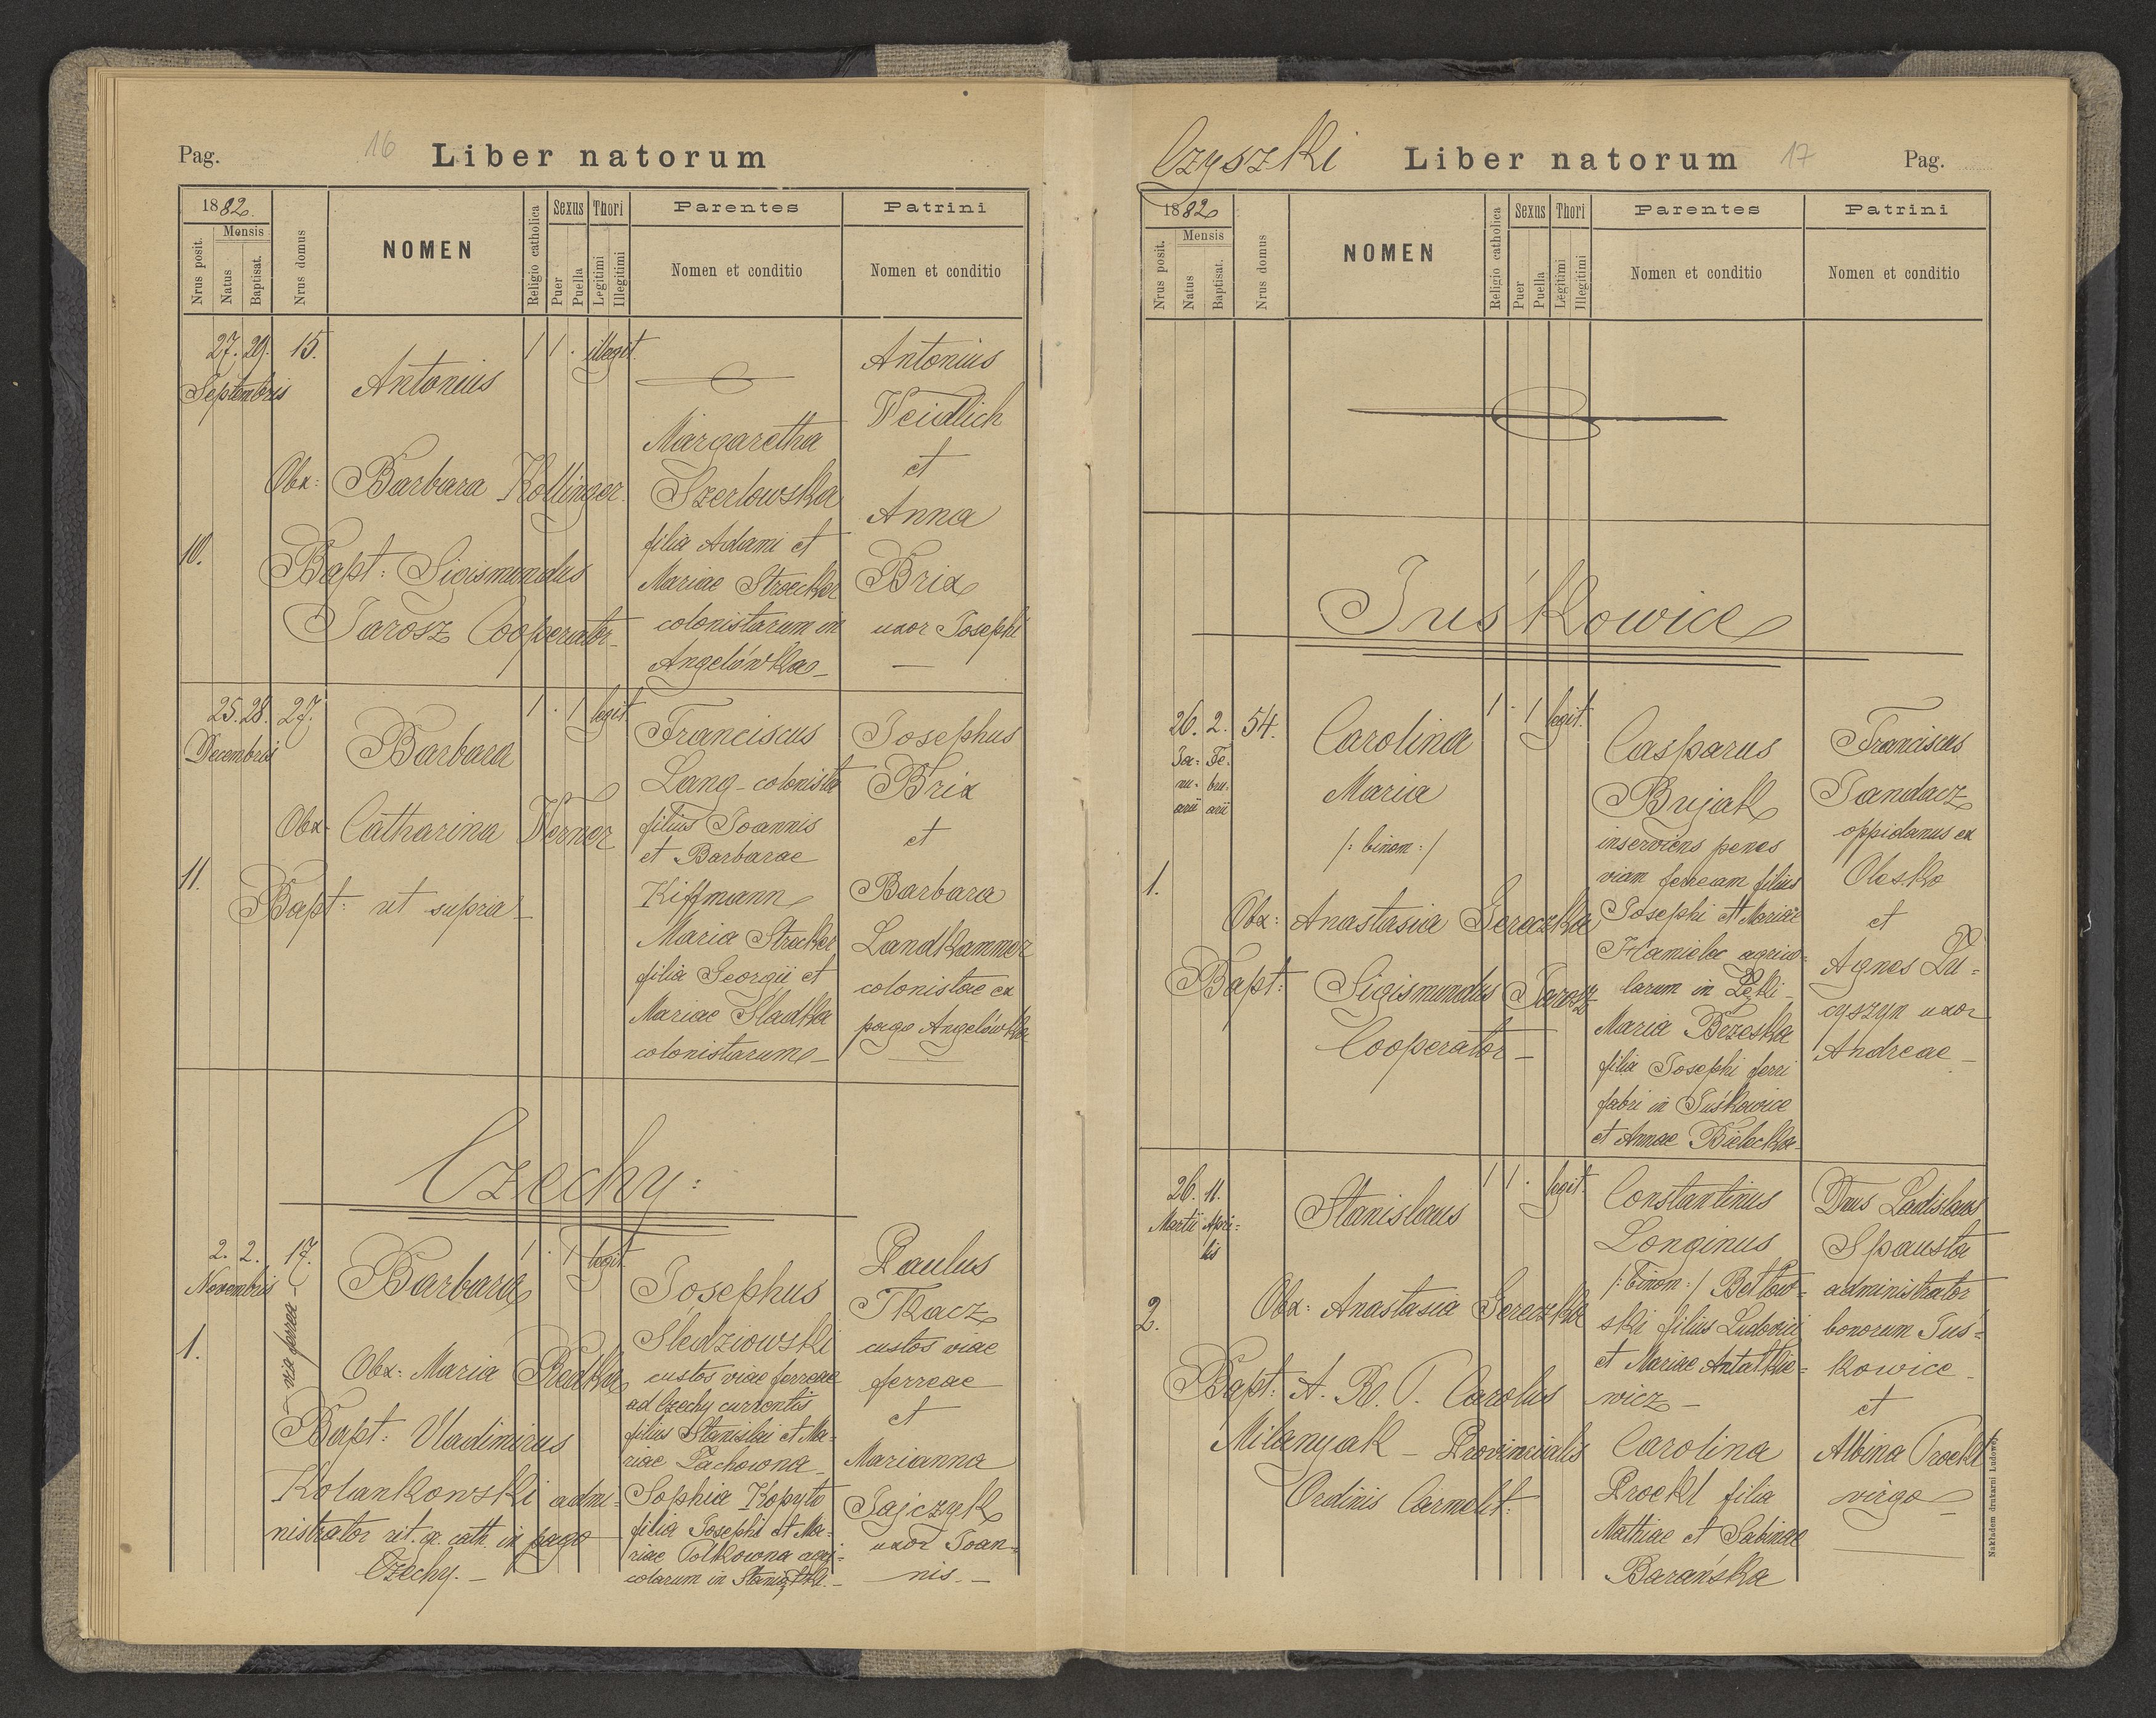 Pag. 16 Liber natorum
1882. Nrus domus NOMEN Religio catholica Sexus Thori Parentes Patrini
Nrus posit. Mensis Natus Baptisat. Puer Puella Legitimi Illegitimi Nomen et conditio Nomen et conditio
27. 29. 15.
Septembris
10.
Antonius
Obx: Barbara Kollinger.
Bapt: Sigismundus
Jarosz Cooperator
1 1 · illegit.
Margaretha
Szerlowska
filia Adami et
Mariae Stroecker
colonistarum in
Angelówka
Antonius
Weidlich
et
Anna
Brix
uxor Josephi
25. 28. 27.
Decembris
11.
Barbara
Obx: Catharina Werner
Bapt: ut supra
1 · 1 legit.
Franciscus
Lang - colonista
filius Joannis
et Barbarae
Kiffmann
Maria Strecker
filia Georgii et
Mariae Sladka
colonistarum
Josephus
Brix
et
Barbara
Landkammer
colonistae ex
pago Angelówka
Czechy:
2. 2. 17.
Novembris
via ferrea
1.
Barbara
Obx: Maria Redka
Bapt: Vladimirus
Kolankowski admi-
nistrator rit. gr. cath. in pago
Czechy.
1 · 1 legit.
Josephus
Śledziowski
custos viae ferreae
ad Czechy currentis
filius Stanislai et Ma-
riae Pachowna
Sophia Kopyto
filia Josephi et Ma-
riae Polkowna agri-
colarum in
Paulus
Tkacz
custos viae
ferreae
et
Marianna
Zajczyk
uxor Joan-
nis.
Czyszki Liber natorum 17 Pag.
1882 Nrus domus NOMEN Religio catholica Sexus Thori Parentes Patrini
Nrus posit. Mensis Natus Baptisat. Puer Puella Legitimi Illegitimi Nomen et conditio Nomen et conditio
Juśkowice
26. 2. 54.
Ja- Fe-
nu- bru-
arii arii
1.
Carolina
Maria
/: binom :/
Obx: Anastasia Gereczka
Bapt: Sigismundus Jarosz
Cooperator
1 · 1 legit.
Casparus
Bujak
inserviens penes
viam ferream filius
Josephi et Mariae
Hamielec agrico-
larum in Łęki
Maria Brzeska
filia Josephi ferri
fabri in Juśkowice
et Annae Bielecka
Franciscus
Tandacz
oppidanus ex
Olesko
et
Agnes Łu-
cyszyn uxor
Andreae
26. 11.
Martii Apri-
lis
2.
Stanislaus
Obx: Anastasia Gereczka
Bapt: A. R. P. Carolus
Milanyak - Provincialis
Ordinis Carmelit:
1 1 · legit.
Constantinus
Longinus
/: binom :/ Bełtow-
ski filius Ludovici
et Mariae Antatkie-
wicz
Carolina
Proekl filia
Mathiae et Sabinae
Barańska
Dnus Ladislaus
Spausta
administrator
bonorum Juś-
kowice
et
Albina Proekl
virgo
Nakładem drukarni Ludowej